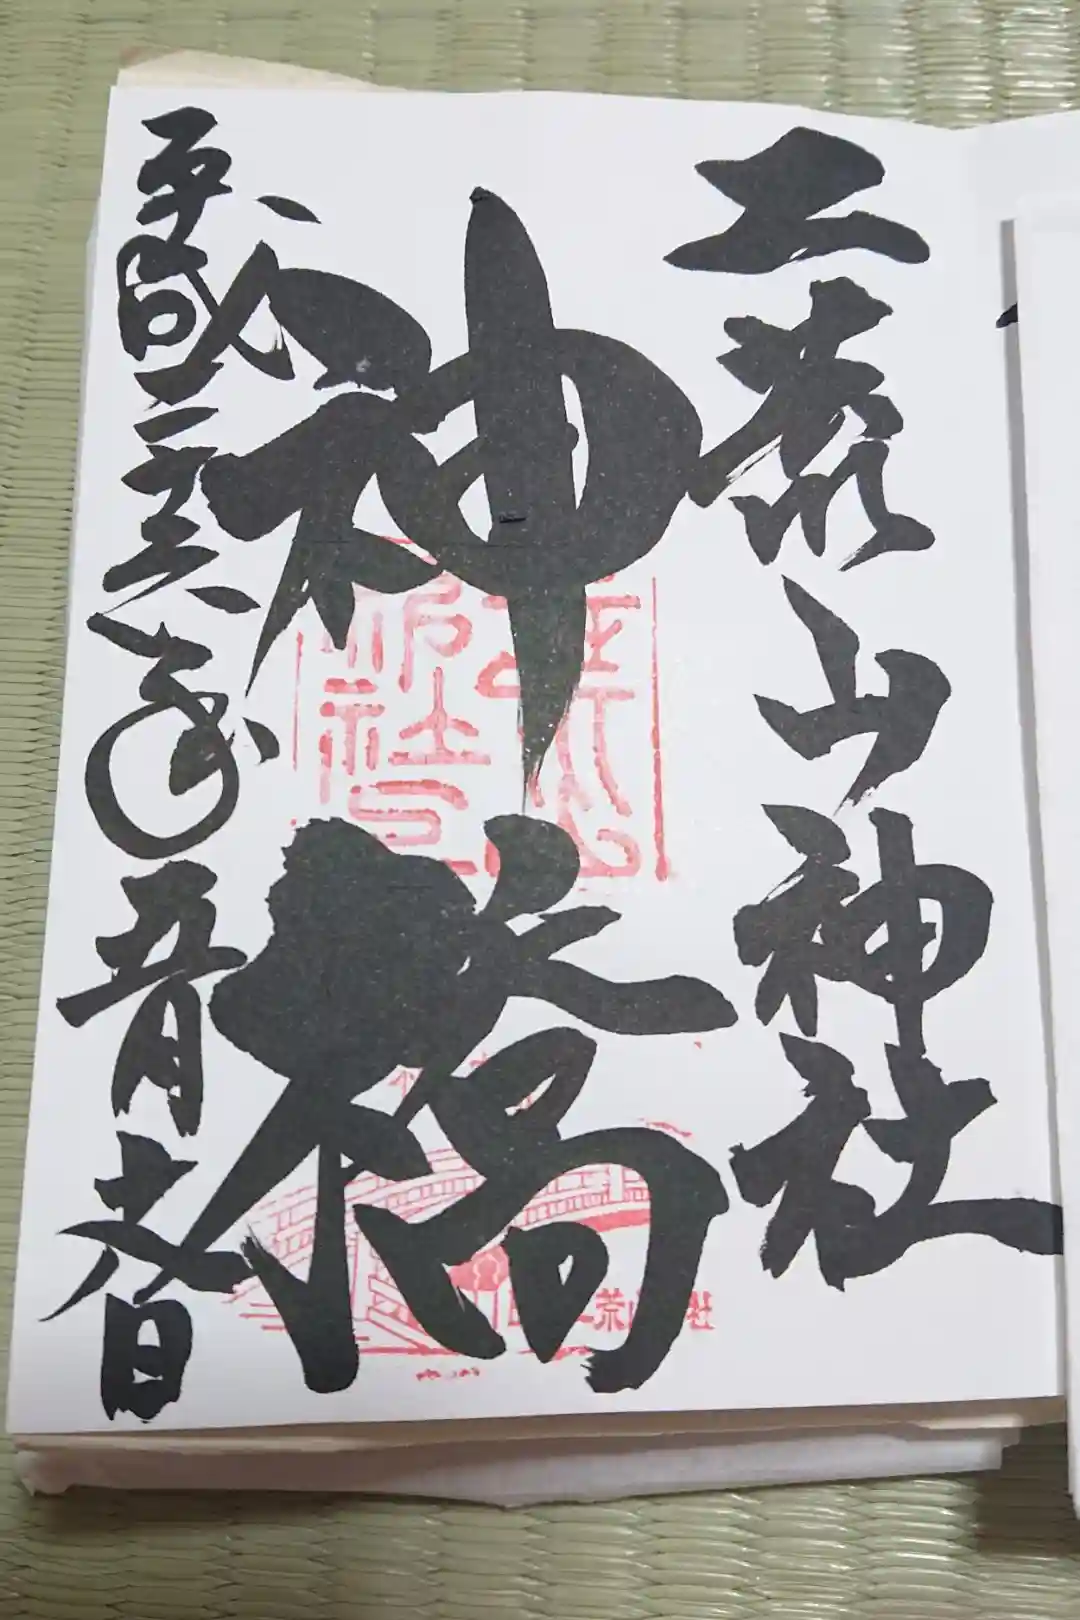 二荒山神社
神橋
平成二十八年五月 日
荒山 社